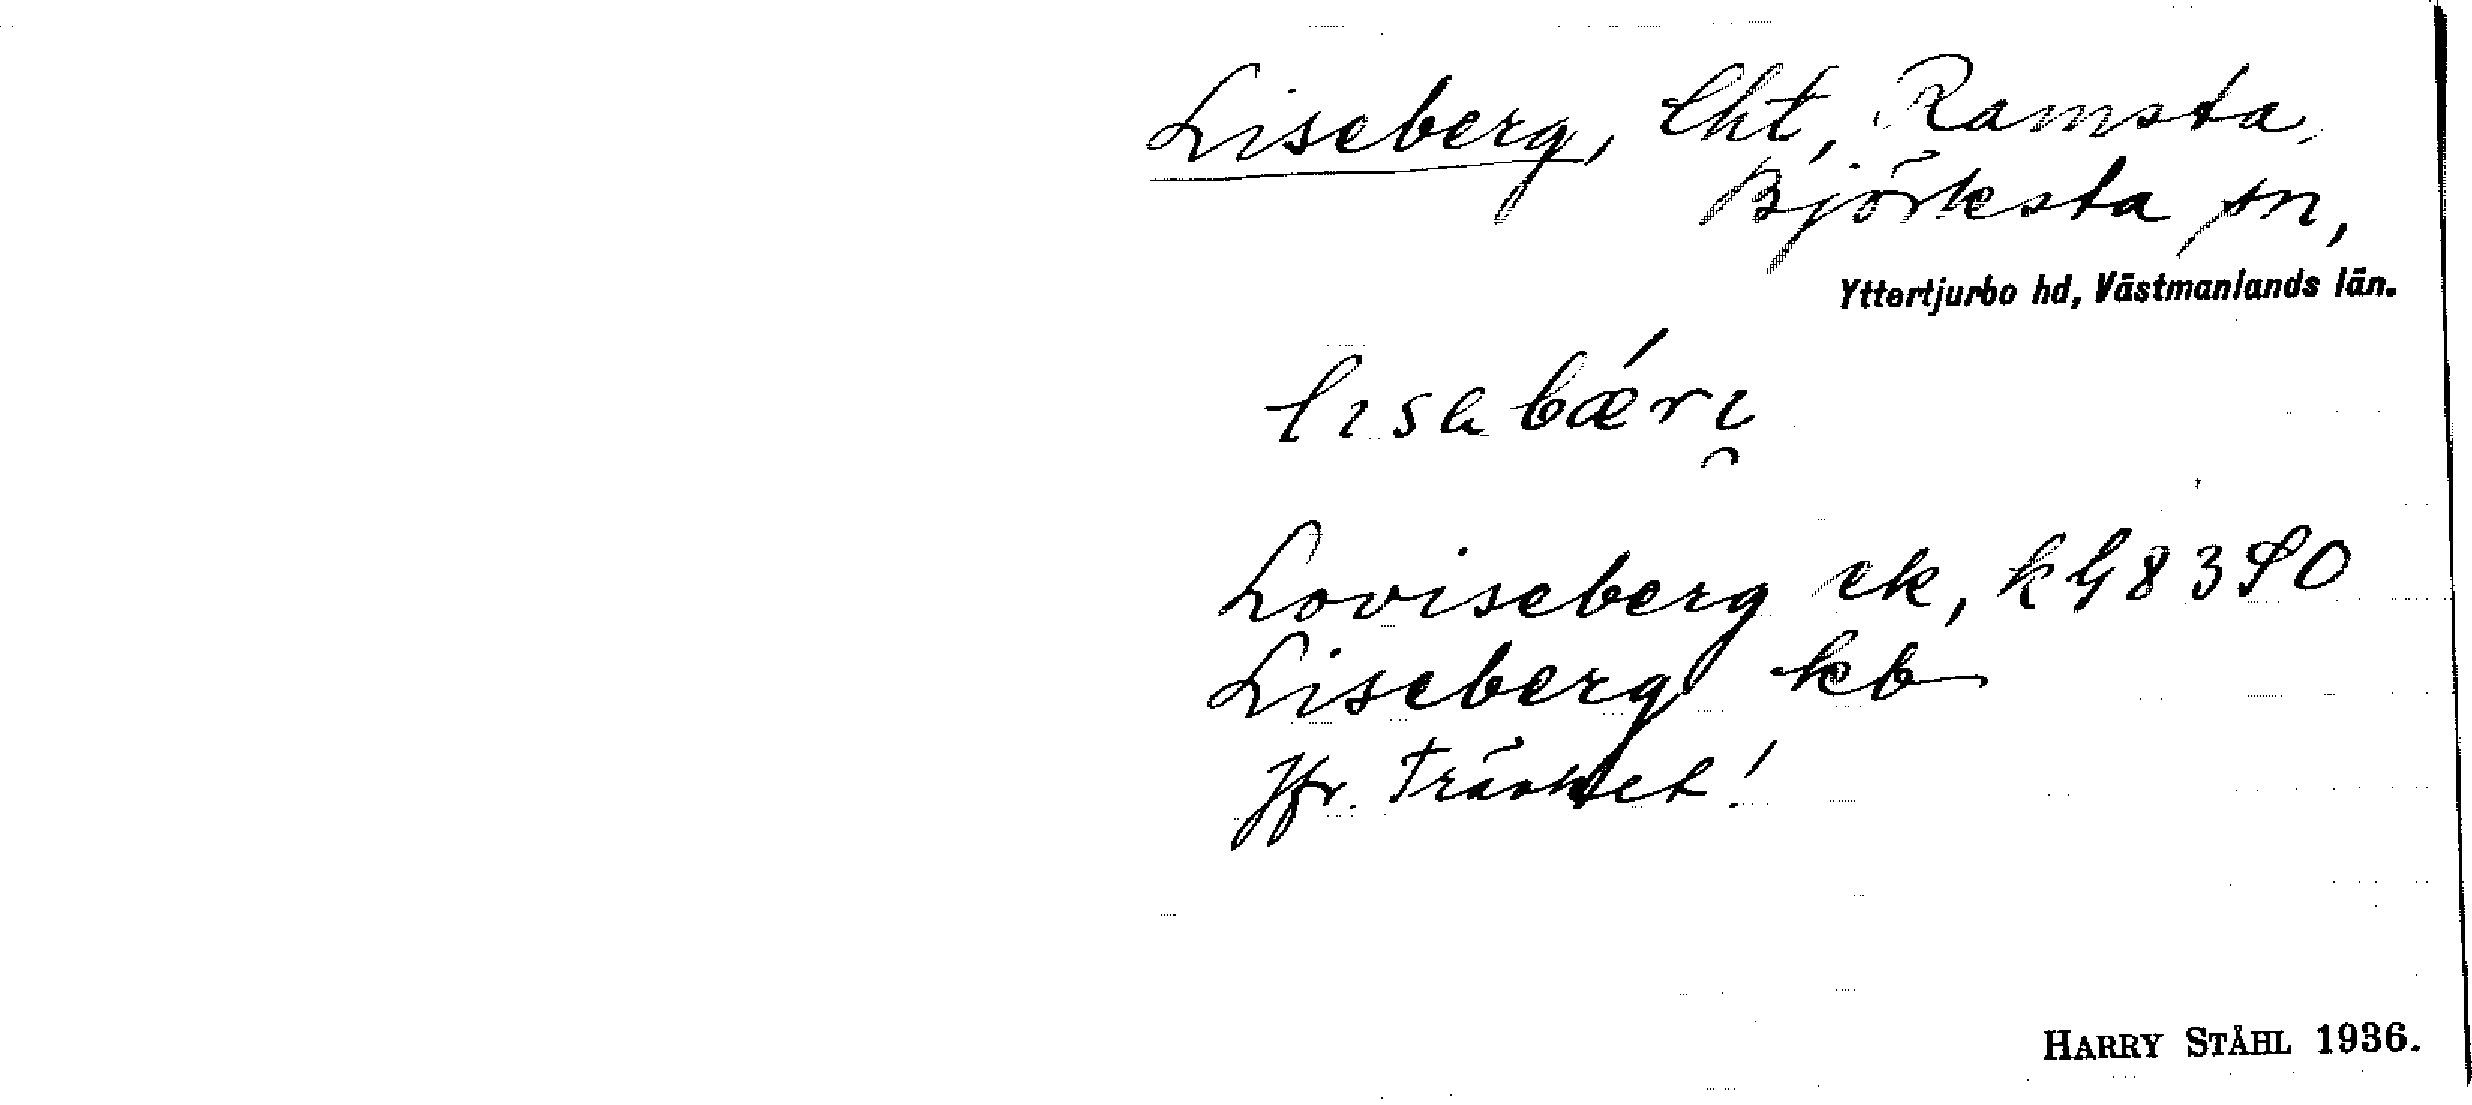 Liseberg, lht, Ramsta,
Björksta sn,
Yttertjurbo hd, Västmanlands län.
lisabǽrɩ
Loviseberg ek,
Liseberg kb
Jfr.
HARRY STÅHL 1936.